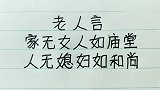 老人言
家无女人如庙堂
人无媳妇如和尚